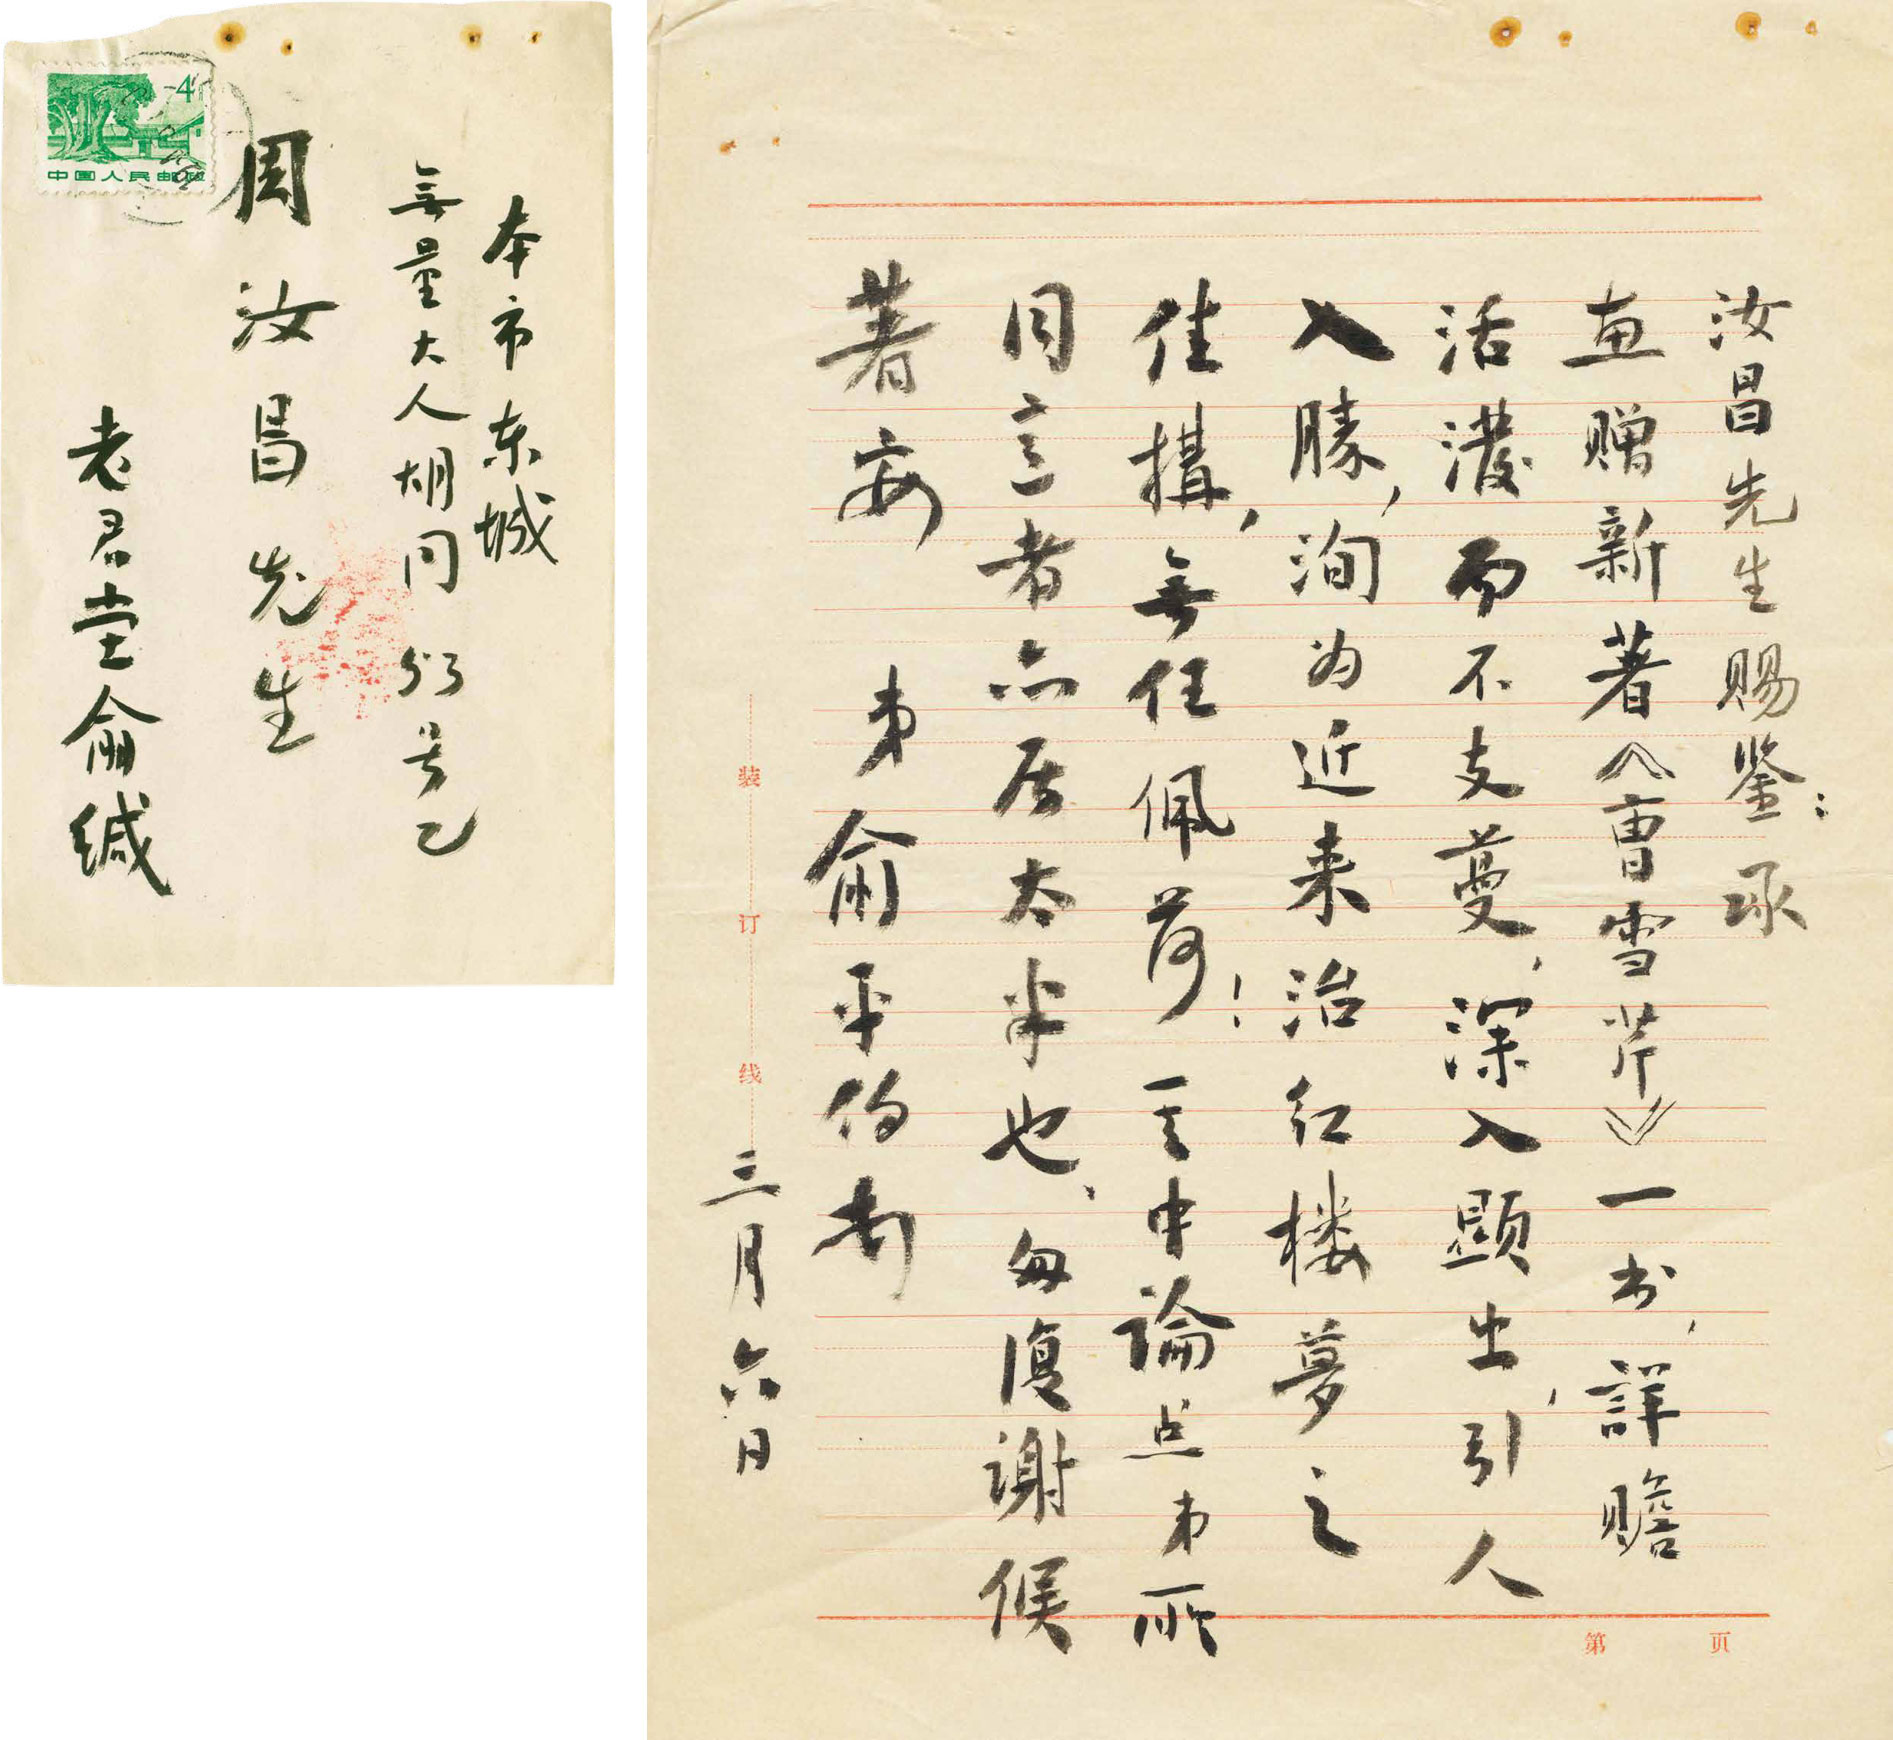 中国人民邮政
4
本市东城
無量大人胡同53号乙
周汝昌先生
老君堂俞缄
汝昌先生赐鉴：承
惠赠新著《曹雪芹》一书，詳贍
活潑而不支蔓，深入顕出，引人
入勝，洵为近来治红楼夢之
佳構，無任佩荷！其中論点弟所
同意者亦居太半也，匆復謝候
著安 弟俞平伯啇
三月六日
装
订
线
第 页